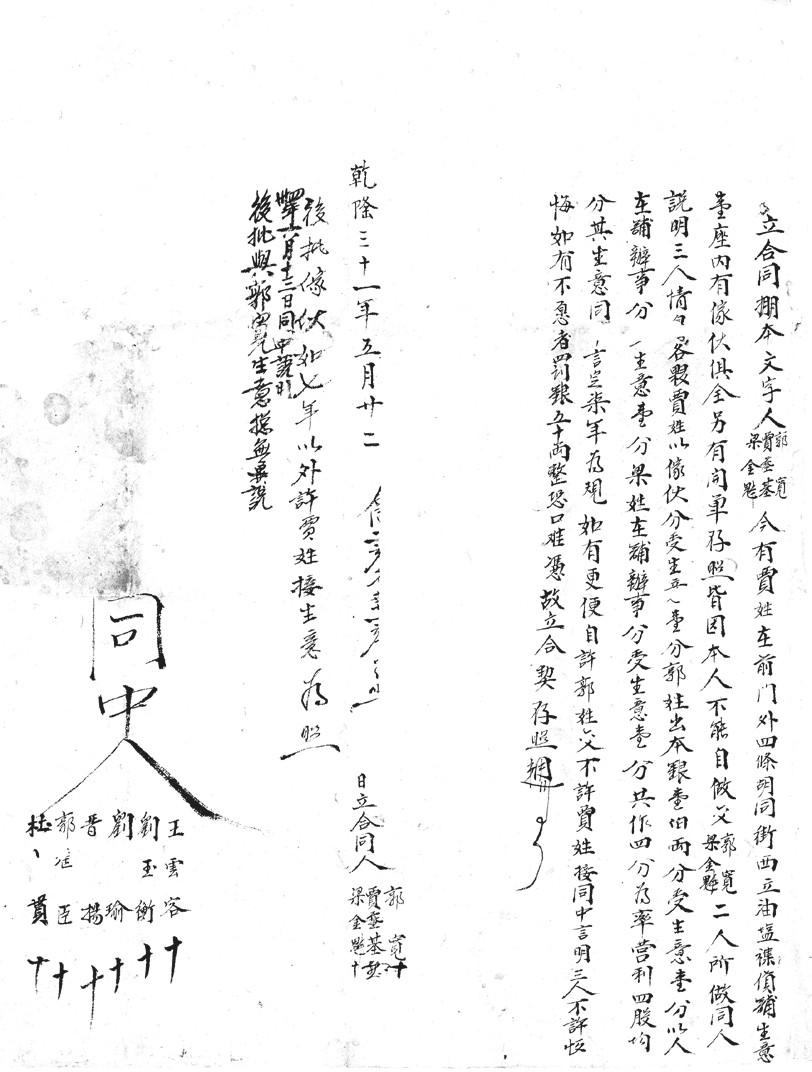 立合同攢本文字人郭寬賈垂基梁金魁今有賈姓在前門外四條胡同街西立油塩襍貨鋪生意
壹座內有傢伙俱全另有向單存照皆因本人不能自做交郭寬梁金魁二人所做同人
說明三人情々各愿賈姓以傢伙分受生意壹分郭姓出本銀壹伯両分受生意壹分以人
在鋪辦事分一生意壹分梁姓在鋪辦事分受生意壹分共作四分為率營利四股均
分其生意同言定柒年為規如有更便自許郭姓交不許賈姓接同中言明三人不許恢
悔如有不愿者罰銀五十両整恐口难憑故立合契存照
乾隆三十一年五月廿二日立合同人郭寬十賈垂基梁金魁十
後批傢伙如七年以外許賈姓接生意為照
年六月十三日同中說明
後批與郭寬生意摠無異說
同中人
王雲容十
劉玉衡十
劉瑜十
晋揚十
郭進臣十
杜貫十